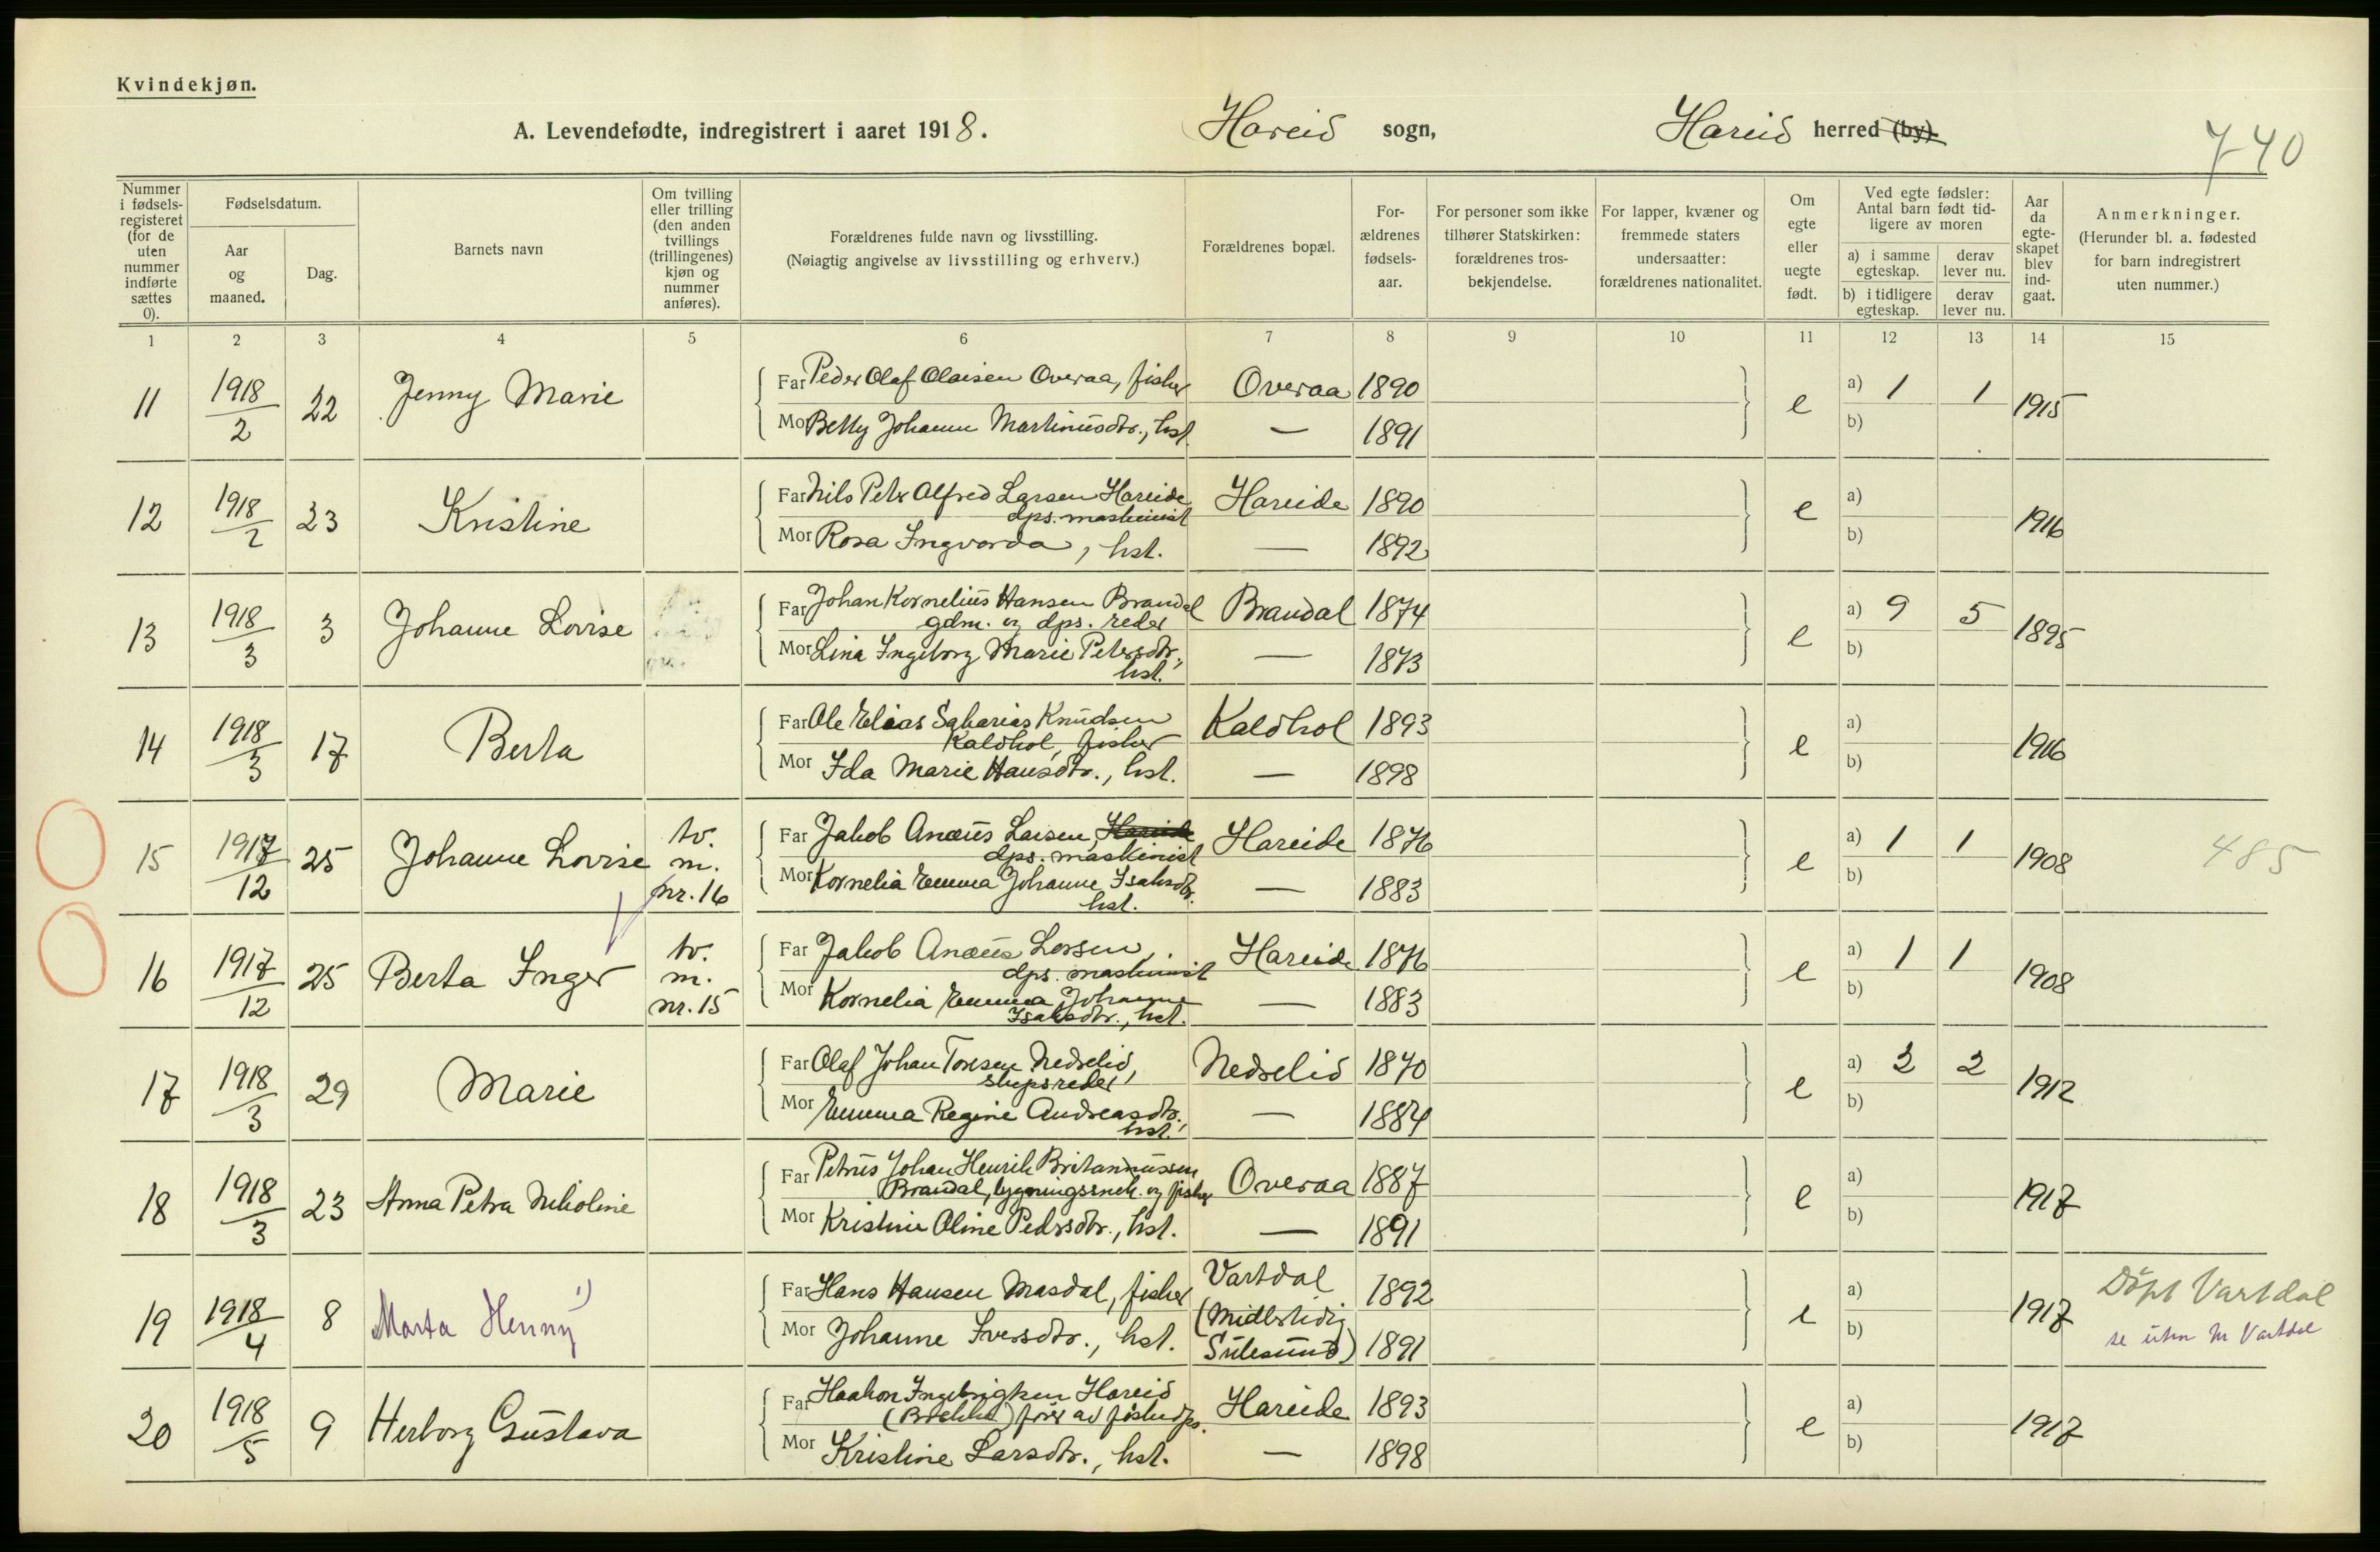 Kvindekjøn.
A. Levendefødte, indregistrert i aaret 1918. Hareid sogn, Hareid herred (by).
740
Nummer i fødsels-registeret (for de uten nummer indførte sættes 0).
Fødselsdatum.
Aar og maaned.
Dag.
Barnets navn
Om tvilling eller trilling (den anden tvillings (trillingenes) kjøn og nummer anføres).
Forældrenes fulde navn og livsstilling.
(Nøiagtig angivelse av livsstilling og erhverv.)
Forældrenes bopæl.
For-ældrenes fødsels-aar.
For personer som ikke tilhører Statskirken: forældrenes tros-bekjendelse.
For lapper, kvæner og fremmede staters undersaatter: forældrenes nationalitet.
Om egte eller uegte født.
Ved egte fødsler: Antal barn født tid-ligere av moren
a) i samme egteskap.
derav lever nu.
b) i tidligere egteskap.
derav lever nu.
Aar da egte-skapet blev ind-gaat.
Anmerkninger.
(Herunder bl. a. fødested for barn indregistrert uten nummer.)
1 2 3 4 5 6 7 8 9 10 11 12 13 14 15
11 1918/2 22 Jenny Marie Far Peder Olaf Olaisen Overaa, fisker Overaa 1890 e a) 1 1 1915
Mo Betty Johanne Martinusdtr., hst. — 1891 b)
12 1918/2 23 Kristine Far Nils Peter Alfred Larsen Hareide Hareide 1890 e a) 1916
dps. maskinist
Mor Rosa Ingvarda, hst. — 1892 b)
13 1918/3 3 Johanne Lovise Far Johan Kornelius Hansen Brandal Brandal 1874 e a) 9 5 1895
gdm. og dps. reder
Mor Lina Ingeborg Marie Petersdtr., — 1873 b)
hst.
14 1918/3 17 Berta Far Ole Elias Sakarias Knudsen Kaldhol 1893 e a) 1916
Kaldhol, fisker
Mor Ida Marie Hansdtr., hst. — 1898 b)
15 1917/12 25 Johanne Lovise tv. m. nr. 16 Far Jakob Anæus Larsen, Hareide Hareide 1876 e a) 1 1 1908 485
dps. maskinist
Mor Kornelia Emma Johanne Isaksdtr. — 1883 b)
hst.
16 1917/12 25 Berta Inger tv. m. nr. 15 Far Jakob Anæus Larsen, Hareide 1876 e a) 1 1 1908
dps. maskinist
Mor Kornelia Emma Johanne — 1883 b)
Isaksdtr., hst.
17 1918/3 29 Marie Far Olaf Johan Toresen Nedrelid, Nedrelid 1870 e a) 2 2 1912
skipsreder
Mor Emma Regine Andreasdtr., — 1884 b)
hst.
18 1918/3 23 Anna Petra Nikoline Far Petrus Johan Henrik Britanniussen Overaa 1887 e a) 1917
Brandal, bygningssnek. og fisker
Mor Kristine Oline Pedersdtr., hst. — 1891 b)
19 1918/4 8 Marta Henny 1) Far Hans Hansen Masdal, fisker Vartdal 1892 e a) 1917 Döpt Vartdal
(Midlertidig
Mor Johanne Iversdtr., hst. Sulesund) 1891 b) se uten nr Vartdal
20 1918/5 9 Herborg Gustava Far Haakon Ingebrigtsen Hareid Hareide 1893 e a) 1917
fører av fiskedps.
Mor Kristine Larsdtr., hst. — 1898 b)